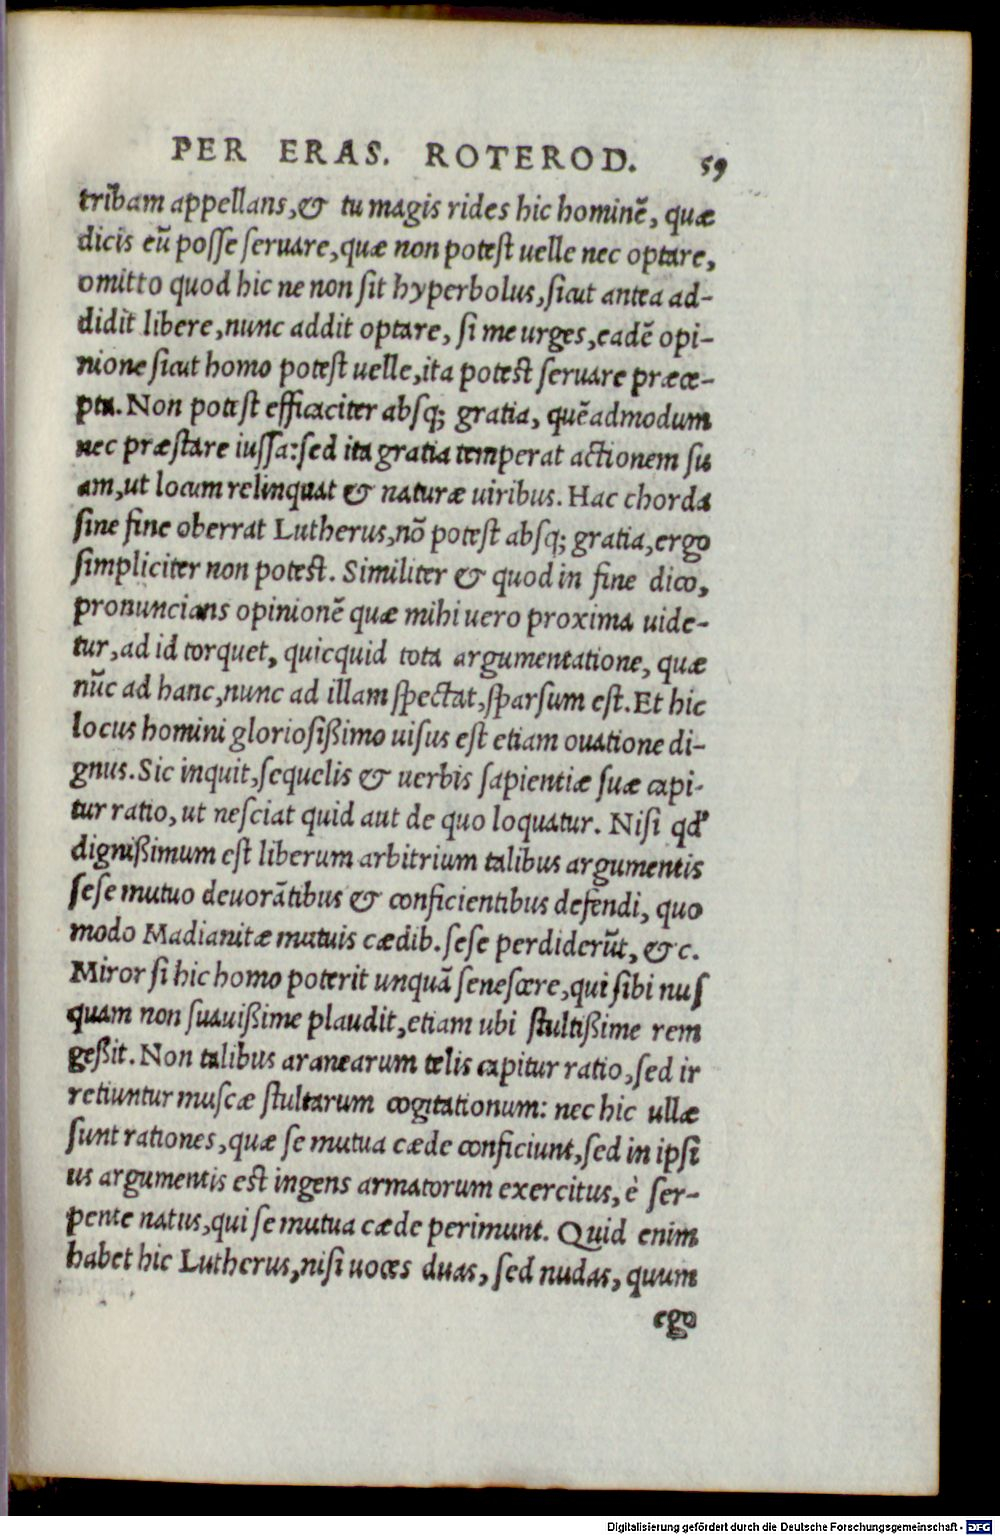 PER ERAS. ROTEROD. 59
tribam appellans,& tu magis rides hic hominē, quæ
dicis eū posse seruare,quæ non potest uelle nec optare,
omitto quod hic ne non sit hyperbolus,sicut antea ad-
didit libere,nunc addit optare, si me urges,eadē opi-
nione sicut homo potest uelle,ita potest seruare præce-
pta. Non potest efficaciter absq; gratia, quēadmodum
nec præstare iussa:sed ita gratia temperat actionem su
am,ut locum relinquat & naturæ uiribus. Hac chorda
sine fine oberrat Lutherus,nō potest absq; gratia,ergo
simpliciter non potest. Similiter & quod in fine dico,
pronuncians opinionē quæ mihi uero proxima uide-
tur,ad id torquet, quicquid tota argumentatione, quæ
nūc ad hanc,nunc ad illam spectat,sparsum est.Et hic
locus homini gloriosißimo uisus est etiam ouatione di-
gnus.Sic inquit,sequelis & uerbis sapientiæ suæ capi-
tur ratio, ut nesciat quid aut de quo loquatur. Nisi qđ
dignißimum est liberum arbitrium talibus argumentis
sese mutuo deuorātibus & conficientibus defendi, quo
modo Madianitæ mutuis cædib. sese perdiderūt, &c.
Miror si hic homo poterit unquā senescere,qui sibi nus
quam non suauißime plaudit,etiam ubi stultißime rem
geßit. Non talibus aranearum telis capitur ratio,sed ir
retiuntur muscæ stultarum cogitationum: nec hic ullæ
sunt rationes,quæ se mutua cæde conficiunt,sed in ipsi
us argumentis est ingens armatorum exercitus, è ser-
pente natus,qui se mutua cæde perimunt. Quid enim
habet hic Lutherus,nisi uoces duas, sed nudas, quum
ego
Digitalisierung gefördert durch die Deutsche Forschungsgemeinschaft - DFG